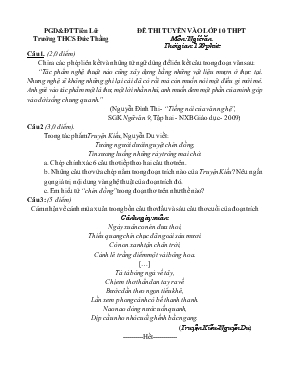 PGD&ĐT Tiên Lữ
Trường THCS Đức Thắng
ĐỀ THI TUYỂN VÀO LỚP 10 THPT
Môn: Ngữ văn.
Thời gian: 120 phút:
Câu 1. (2,0 điểm)
Chỉ ra các phép liên kết và những từ ngữ dùng để liên kết câu trong đoạn văn sau.
"Tác phẩm nghệ thuật nào cũng xây dựng bằng những vật liệu mượn ở thực tại. Nhưng nghệ sĩ không những ghi lại cái đã có rồi mà còn muốn nói một điều gì mới mẻ. Anh gửi vào tác phẩm một lá thư, một lời nhắn nhủ, anh muốn đem một phần của mình góp vào đời sống chung quanh".
(Nguyễn Đình Thi- "Tiếng nói của văn nghệ",
SGK Ngữ văn 9, Tập hai - NXB Giáo dục- 2009)
Câu 2 (3,0 điểm).
Trong tác phẩm Truyện Kiều, Nguyễn Du viết:
Tưởng người dưới nguyệt chén đồng,
Tin sương luống những rày trông mai chờ.
a. Chép chính xác 6 câu thơ tiếp theo hai câu thơ trên.
b. Những câu thơ vừa chép nằm trong đoạn trích nào của Truyện Kiều? Nêu ngắn gọn giá trị nội dung và nghệ thuật của đoạn trích đó.
c. Em hiểu từ "chén đồng" trong đoạn thơ trên như thế nào?
Câu 3: (5 điểm)
Cảm nhận về cảnh mùa xuân trong bốn câu thơ đầu và sáu câu thơ cuối của đoạn trích
Cảnh ngày xuân:
Ngày xuân con én đưa thoi,
Thiều quang chín chục đã ngoài sáu mươi
Cỏ non xanh tận chân trời,
Cành lê trắng điểm một vài bông hoa.
[...]
Tà tà bóng ngả về tây,
Chị em thơ thẩn dan tay ra về
Bước dần theo ngọn tiểu khê,
Lần xem phong cảnh có bề thanh thanh.
Nao nao dòng nước uốn quanh,
Dịp cầu nho nhỏ cuối ghềnh bắc ngang.
(Truyện Kiều-Nguyễn Du)
----------Hết----------